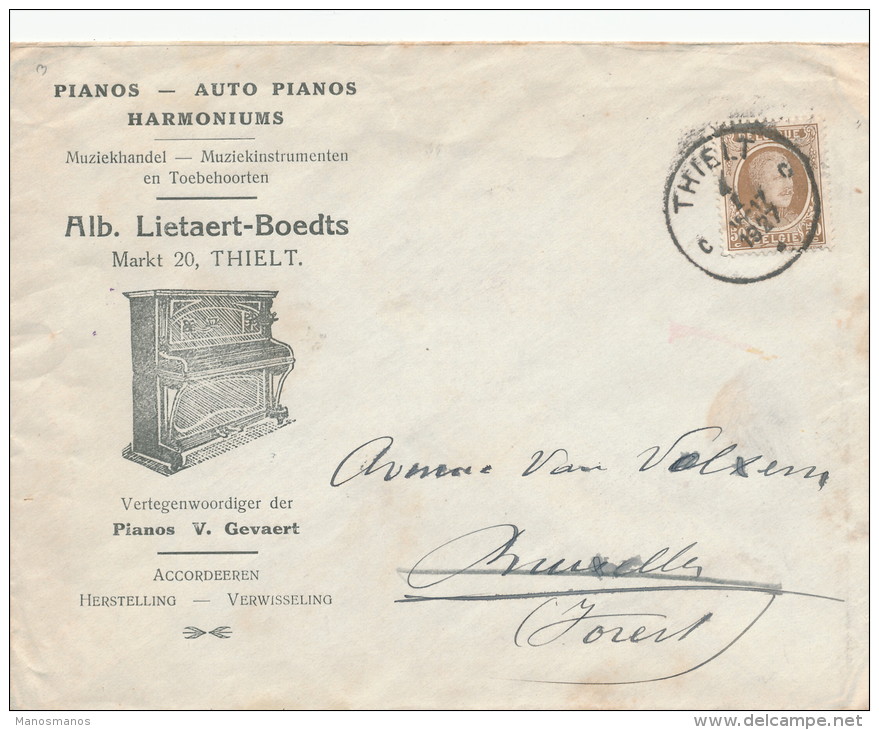 PIANOS — AUTO PIANOS
HARMONIUMS
Muziekhandel — Muziekinstrumenten
en Toebehoorten
Alb. Lietaert-Boedts
Markt 20, THIELT.
Vertegenwoordiger der
Pianos V. Gevaert
ACCORDEEREN
HERSTELLING — VERWISSELING
THIELT
C C
1927
BELGIE
Avenue Van Volxem
Bruxelles
(Forest)
Manosmanos
delcampe.net